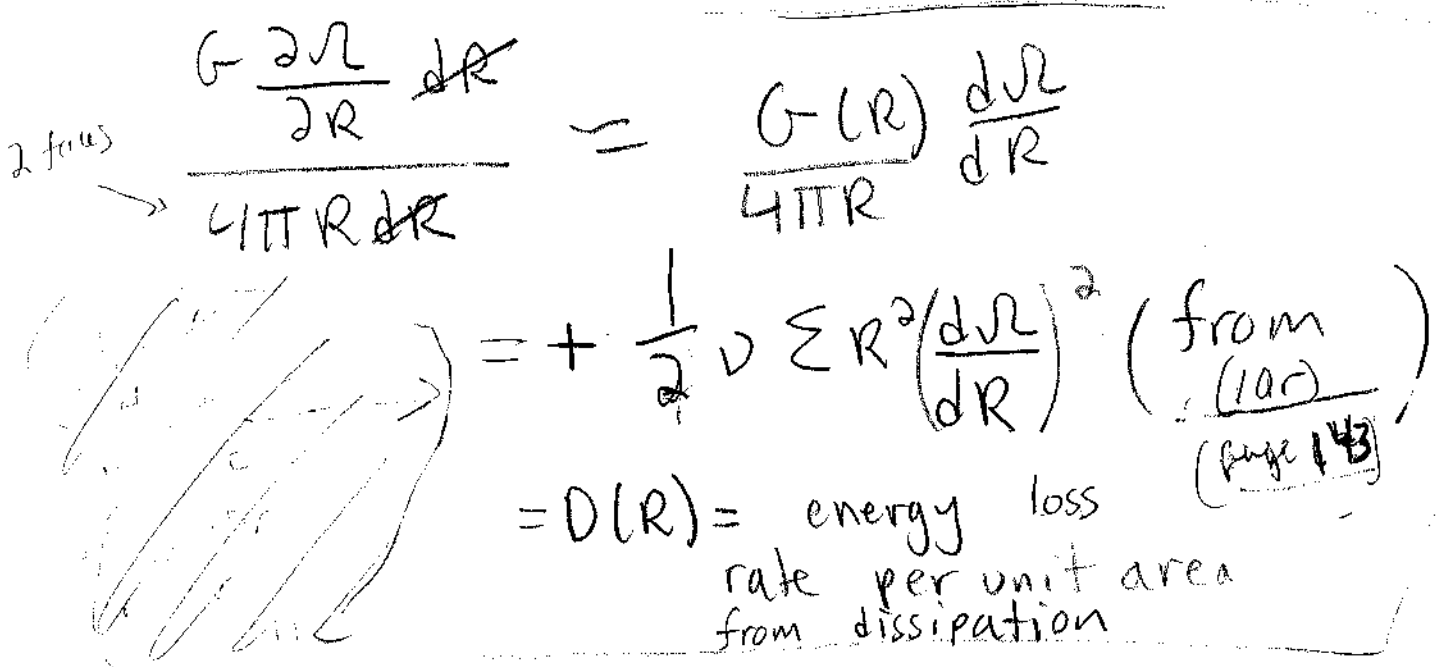 2 faces → G ∂Ω/∂R dR / 4πR dR = G(R)/4πR dΩ/dR
= + 1/2 ν Σ R² (dΩ/dR)² (from
(page 143)
= D(R) = energy loss
rate per unit area
from dissipation